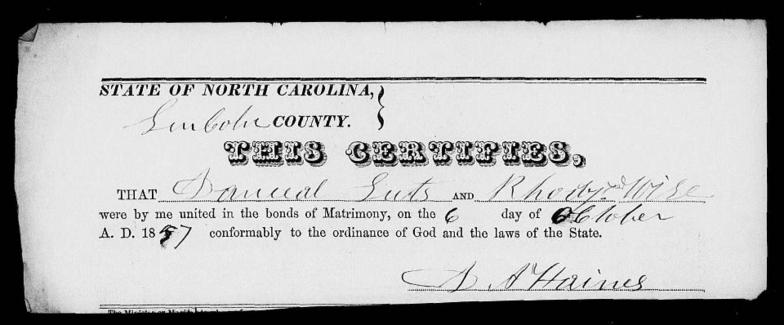 STATE OF NORTH CAROLINA,
Lincoln COUNTY.
THIS CERTIFIES,
THAT Danieal Luts AND Rhody Wise
were by me united in the bonds of Matrimony, on the 6 day of October
A. D. 1857 conformably to the ordinance of God and the laws of the State.
A Haines